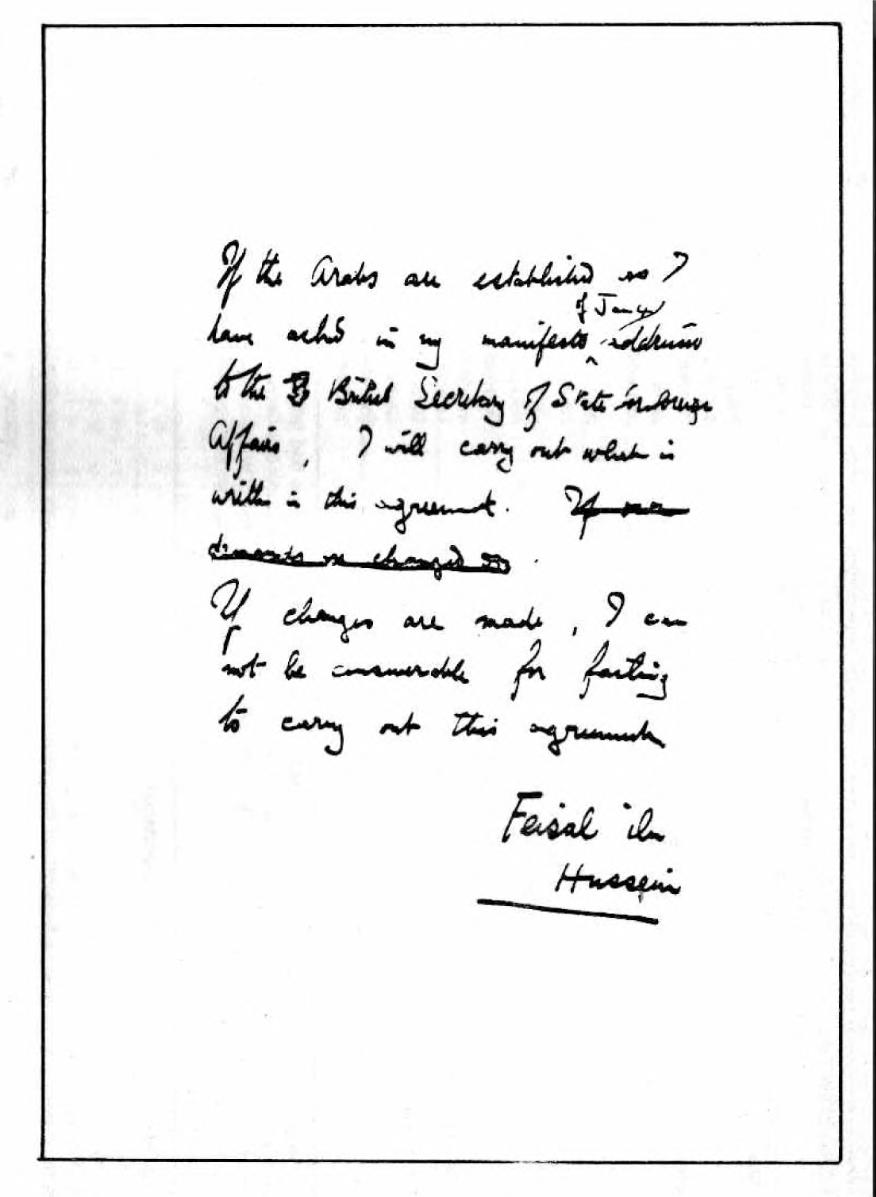 If the Arabs are established as I
of Jan 4
have asked in my manifesto addressed
to the British Secretary of State for Foreign
Affairs, I will carry out what is
written in this agreement. If
changed
If changes are made, I can
not be answerable for failing
to carry out this agreement
Feisal ibn
Hussein